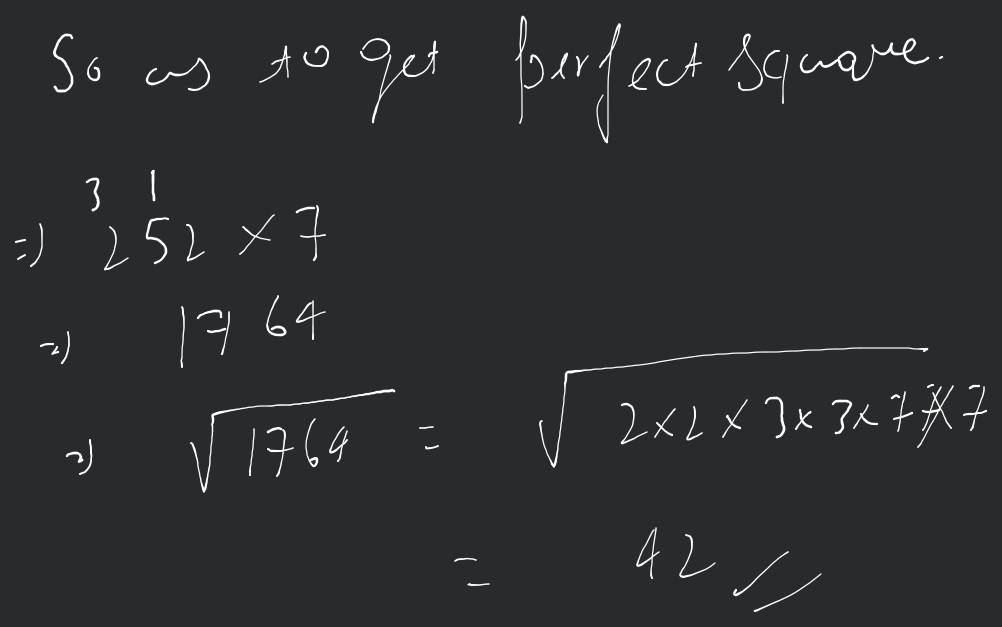 So as to get perfect square.
3 1
=) 252 × 7
=) 1764
=) √1764 = √2×2×3×3×7×7
= 42